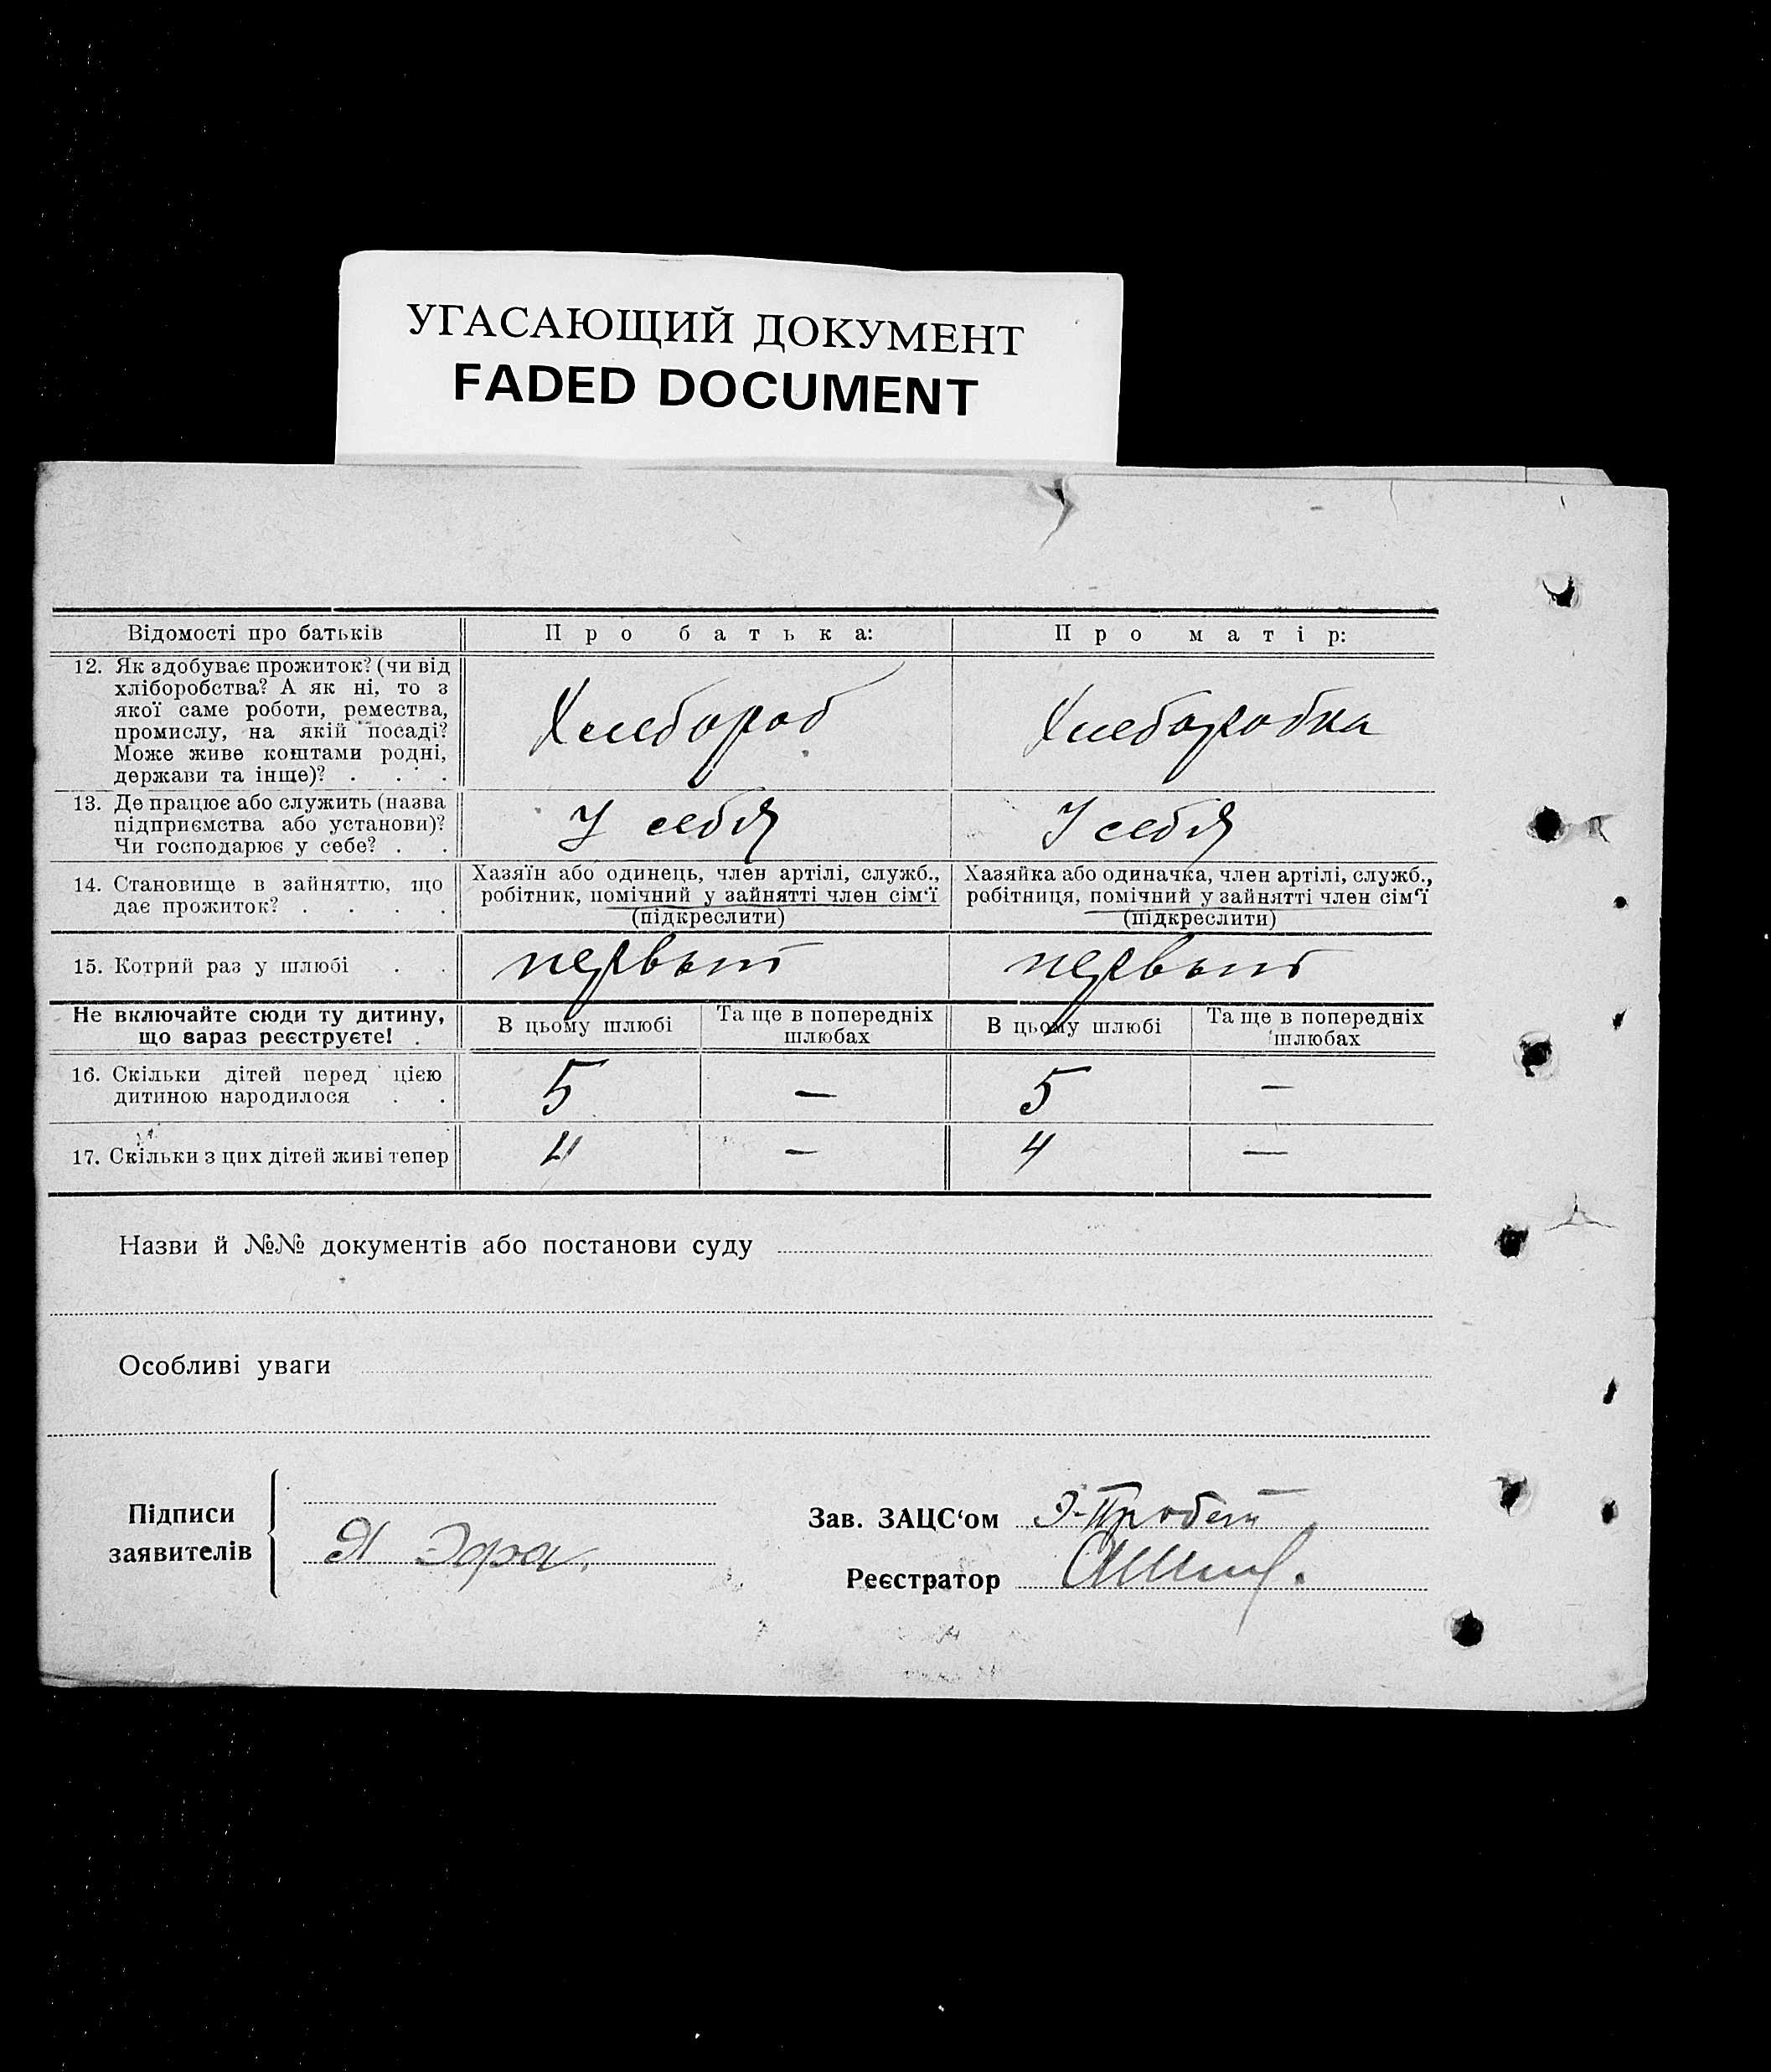 УГАСАЮЩИЙ ДОКУМЕНТ
FADED DOCUMENT
Відомості про батьків
Про батька:
Про матір:
12. Як здобуває прожиток? (чи від
хліборобства? А як ні, то з
якої саме роботи, ремества,
промислу, на якій посаді?
Може живе коштами родні,
держави та інще)? . . .
Хлебороб
Хлеборобка
13. Де працює або служить (назва
підприємства або установи)?
Чи господарює у себе? . .
У себя
У себя
14. Становище в зайняттю, що
дає прожиток? . . . .
Хазяїн або одинець, член артілі, служб.,
робітник, помічний у зайнятті член сім‘ї
(підкреслити)
Хазяйка або одиначка, член артілі, служб.,
робітниця, помічний у зайнятті член сім‘ї
(підкреслити)
15. Котрий раз у шлюбі . .
первый
первый
Не включайте сюди ту дитину,
що зараз реєструєте! .
В цьому шлюбі
Та ще в попередніх
шлюбах
В цьому шлюбі
Та ще в попередніх
шлюбах
16. Скільки дітей перед цією
дитиною народилося . .
5
—
5
—
17. Скільки з цих дітей живі тепер
4
—
4
—
Назви й №№ документів або постанови суду
Особливі уваги
Підписи
заявителів
Я
Зав. ЗАЦС‘ом
Реєстратор